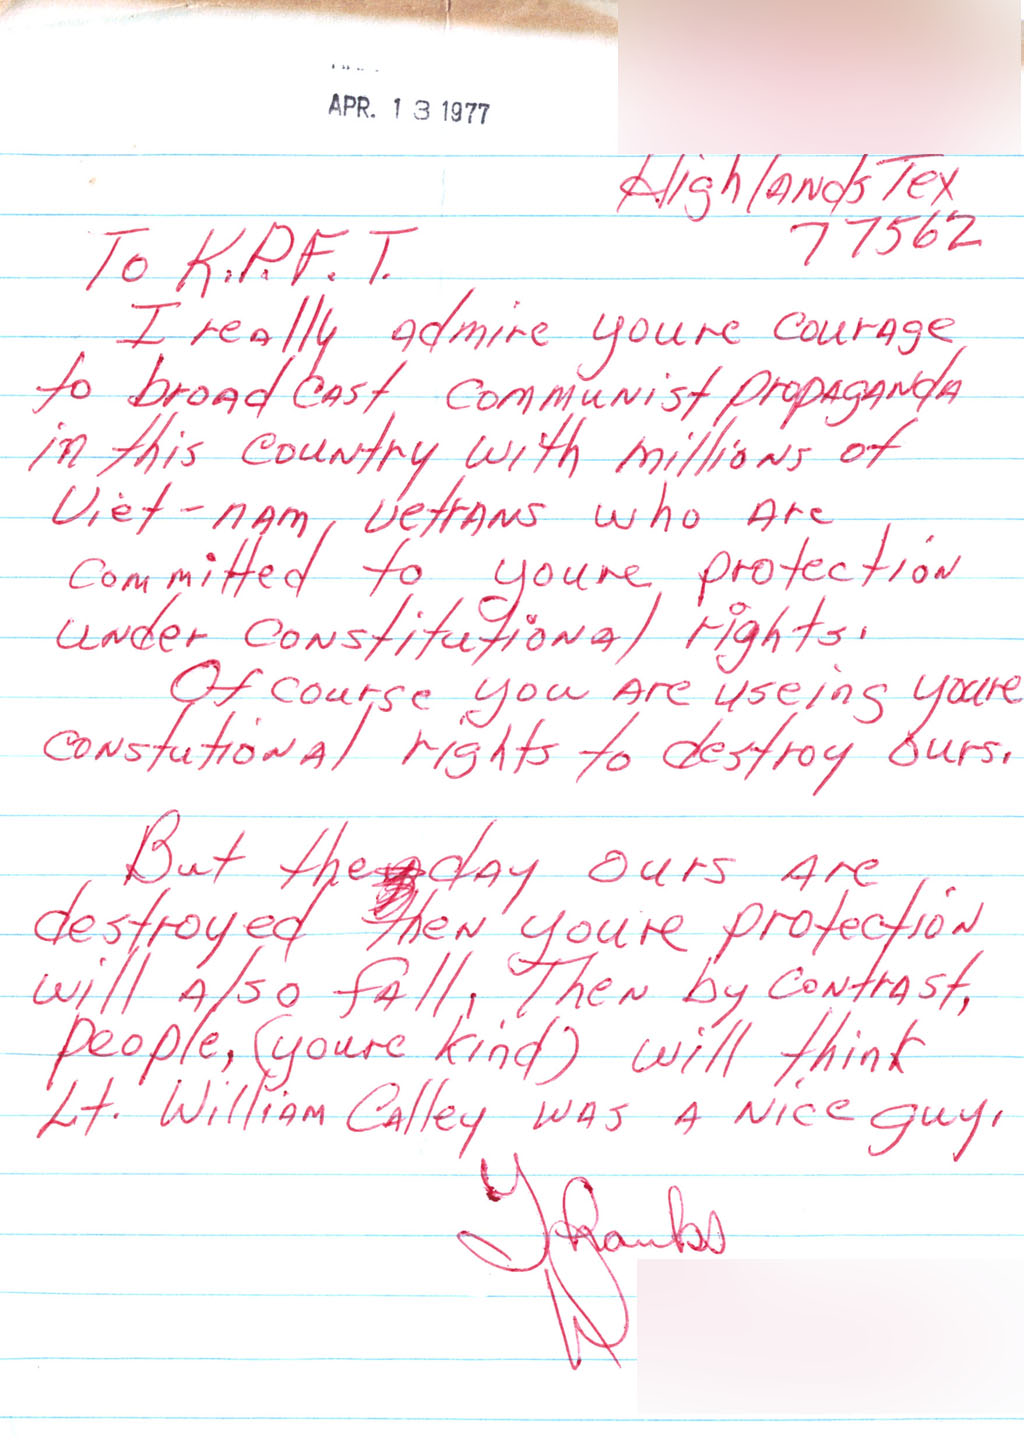 APR. 13 1977
Highlands Tex
77562
To K.P.F.T.
I really admire youre courage
to broadcast communist propaganda
in this country with millions of
Viet-nam, vetrans who are
committed to youre protection
under constitutional rights.
Of course you are useing youre
constutional rights to destroy ours.
But the day ours are
destroyed then youre protection
will also fall, Then by contrast,
people, (youre kind) will think
Lt. William Calley was a nice guy.
Thanks